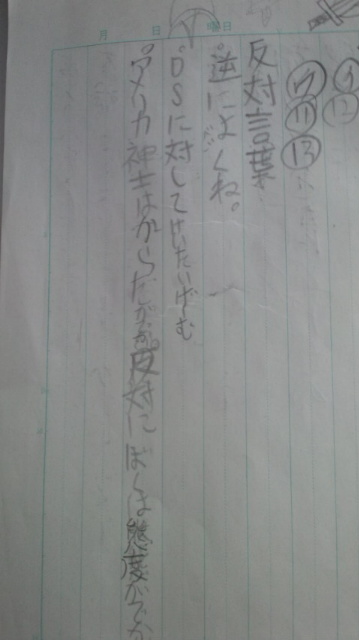 月 日 曜日
⑨
⑫
⑰⑪⑬
反対言葉
逆によくね。
DSに対してけいたいげーむ
アメリカ紳士はがらだが反対にぼくは態度がでか